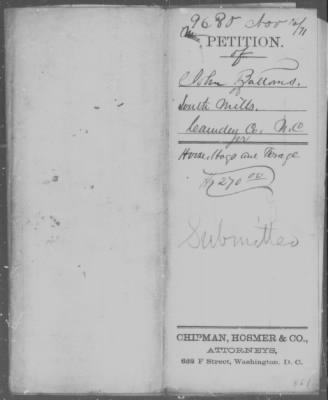 9680 Nov 20/71
PETITION.
of
John Ballans.
of
South Mills.
Camden Co. N.C
for
Horse, Hogs and Forage
$270 00
Submitted
CHIPMAN, HOSMER & CO.,
ATTORNEYS,
632 F Street, Washington. D. C.